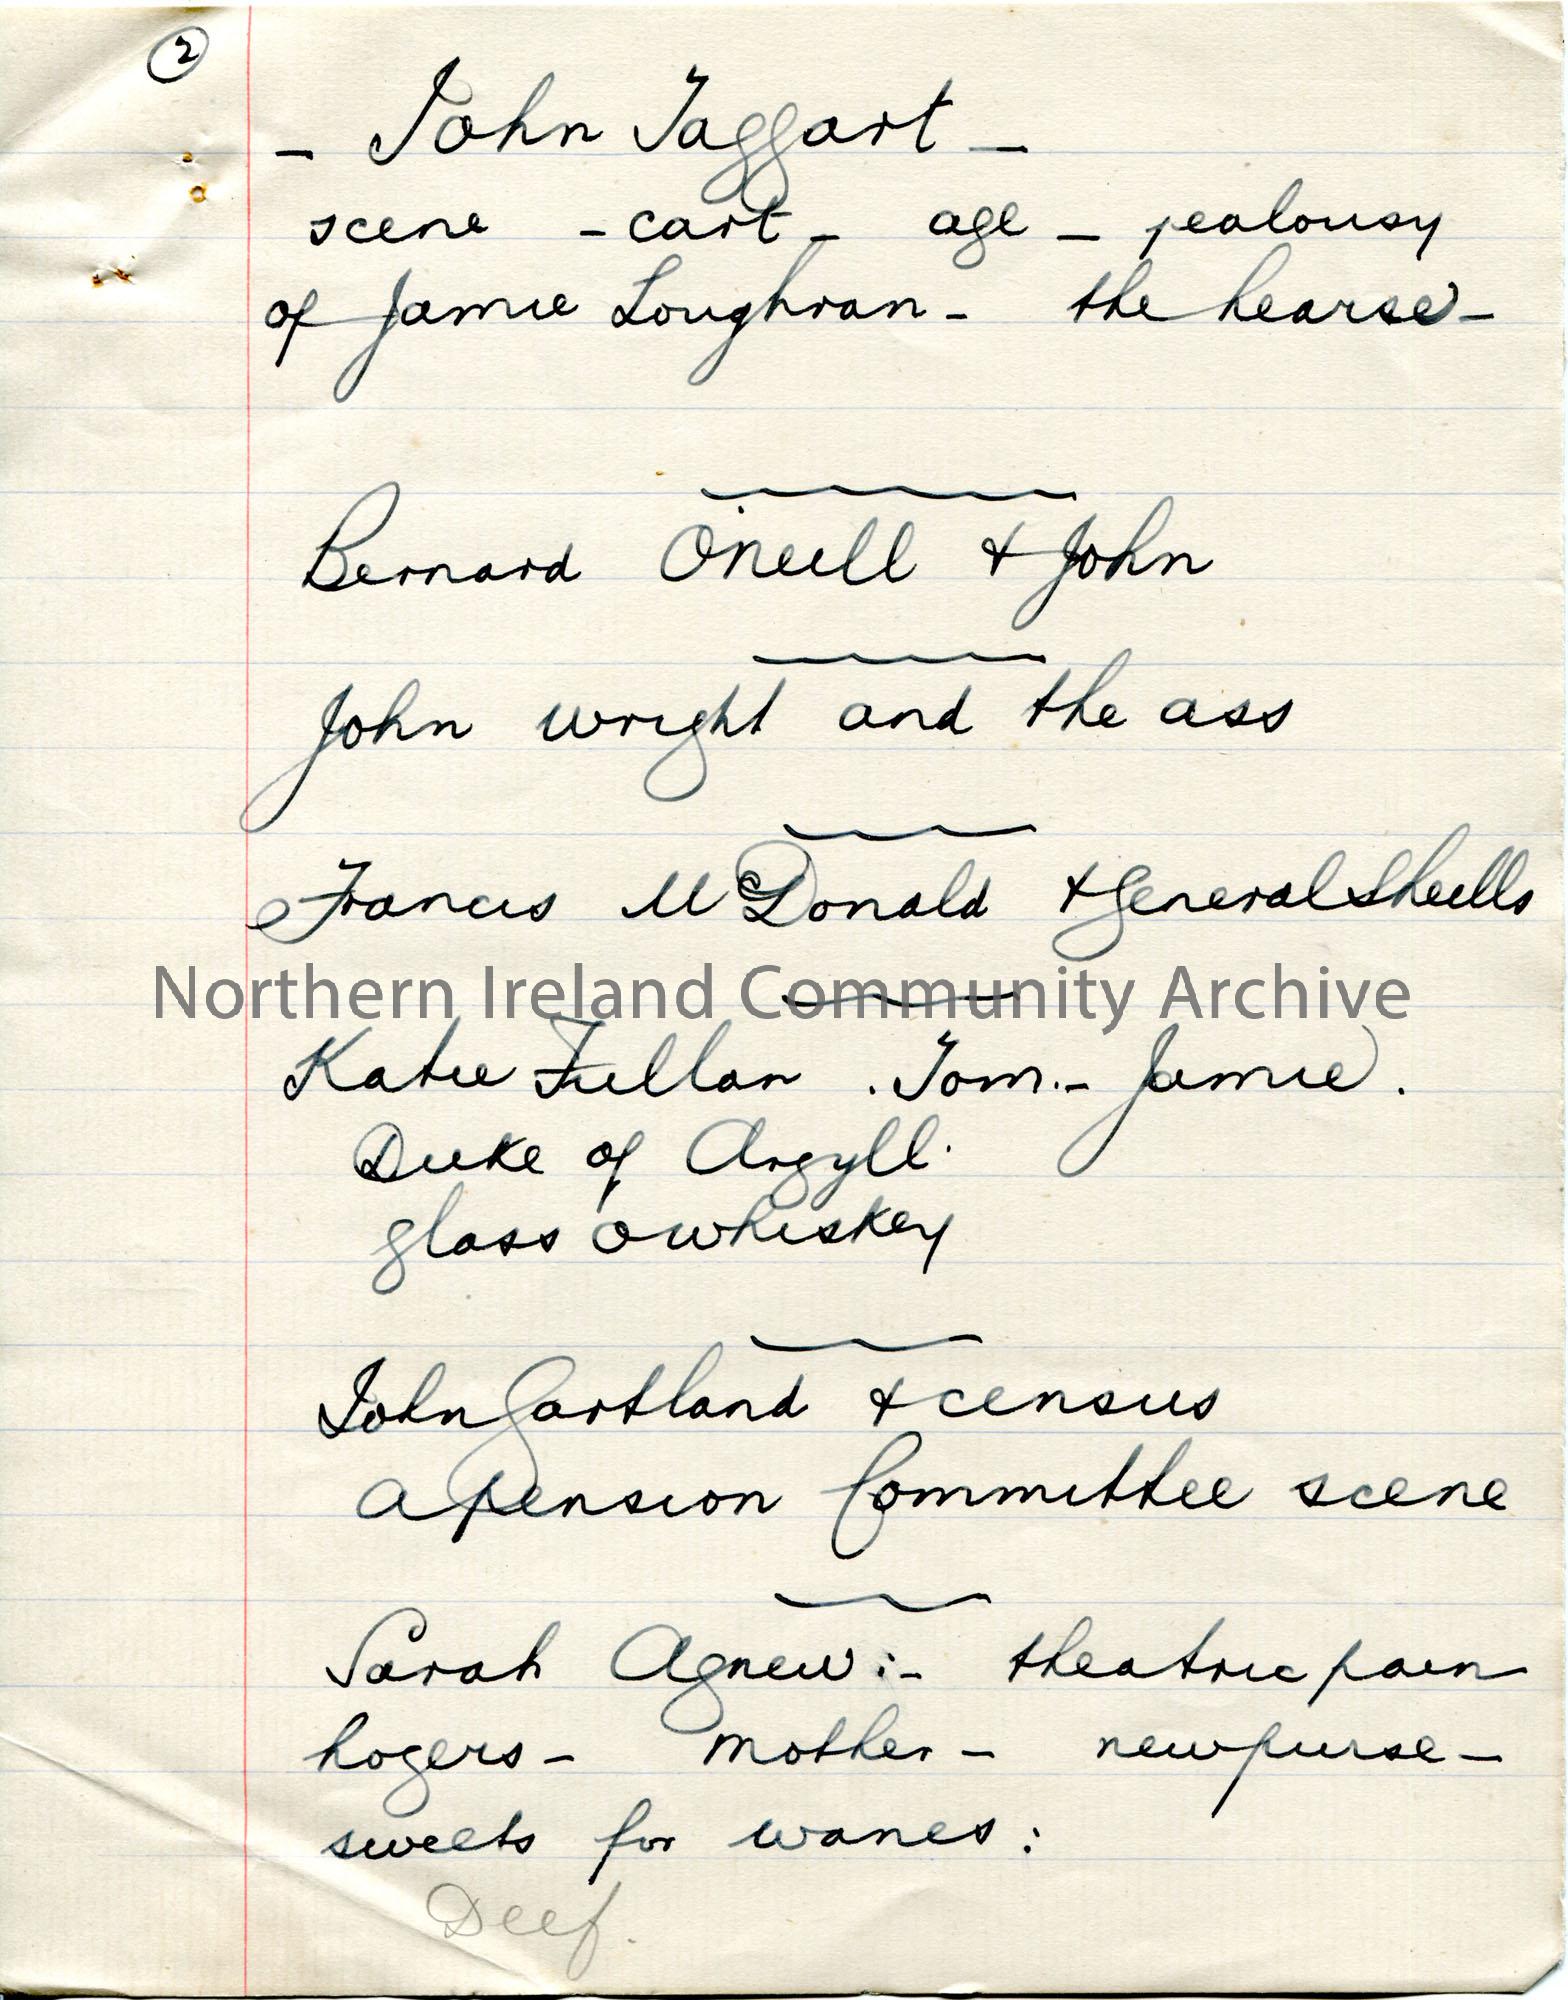 2
- John Taggart -
scene - cart - age - jealousy
of Jamie Loughran - the hearse -
Bernard O'neill & John
John wright and the ass
Francis McDonald & General Sheills
Northern Ireland Community Archive
Katie Fullan . Tom. - Jamie .
Duke of Argyll .
glass o whiskey
John Gartland & census
a pension Committee scene
Sarah Agnew :- theatric pain
hogers - mother - new purse -
sweets for wanes :
Deef .